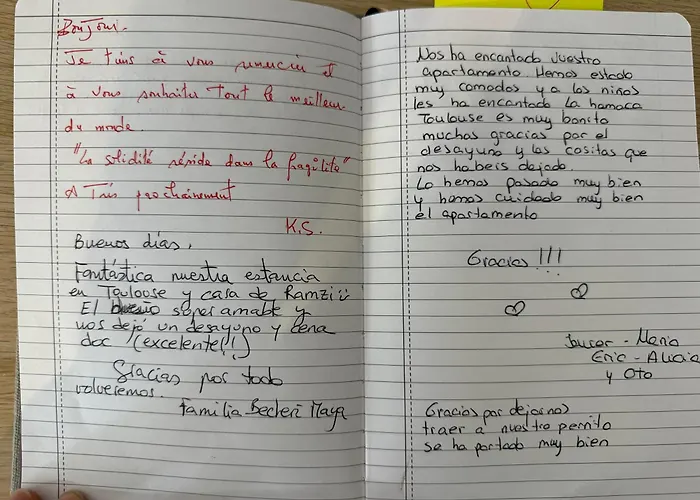 Bonjour.
Je tiens à vous remercier et
à vous souhaiter tout le meilleur
du monde.
"La solidité réside dans la fragilité"
A Très prochainement
K.S.
Buenos días,
Fantástica nuestra estancia
en Toulouse y casa de Ramzi
El super amable y
nos dejó un desayuno y cena
doc (excelente!!)
Gracias por todo
volveremos.
Familia Maya
Nos ha encantado vuestro
apartamento. Hemos estado
muy comodos y a los niños
les ha encantado la hamaca
Toulouse es muy bonito
muchas gracias por el
desayuno y las cositas que
nos habeis dejado.
Lo hemos pasado muy bien
y hemos cuidado muy bien
el apartamento
Gracias !!!
- Maria
Eric - Alicia
y Oto
Gracias por dejarnos
traer a nuestro perrito
se ha portado muy bien